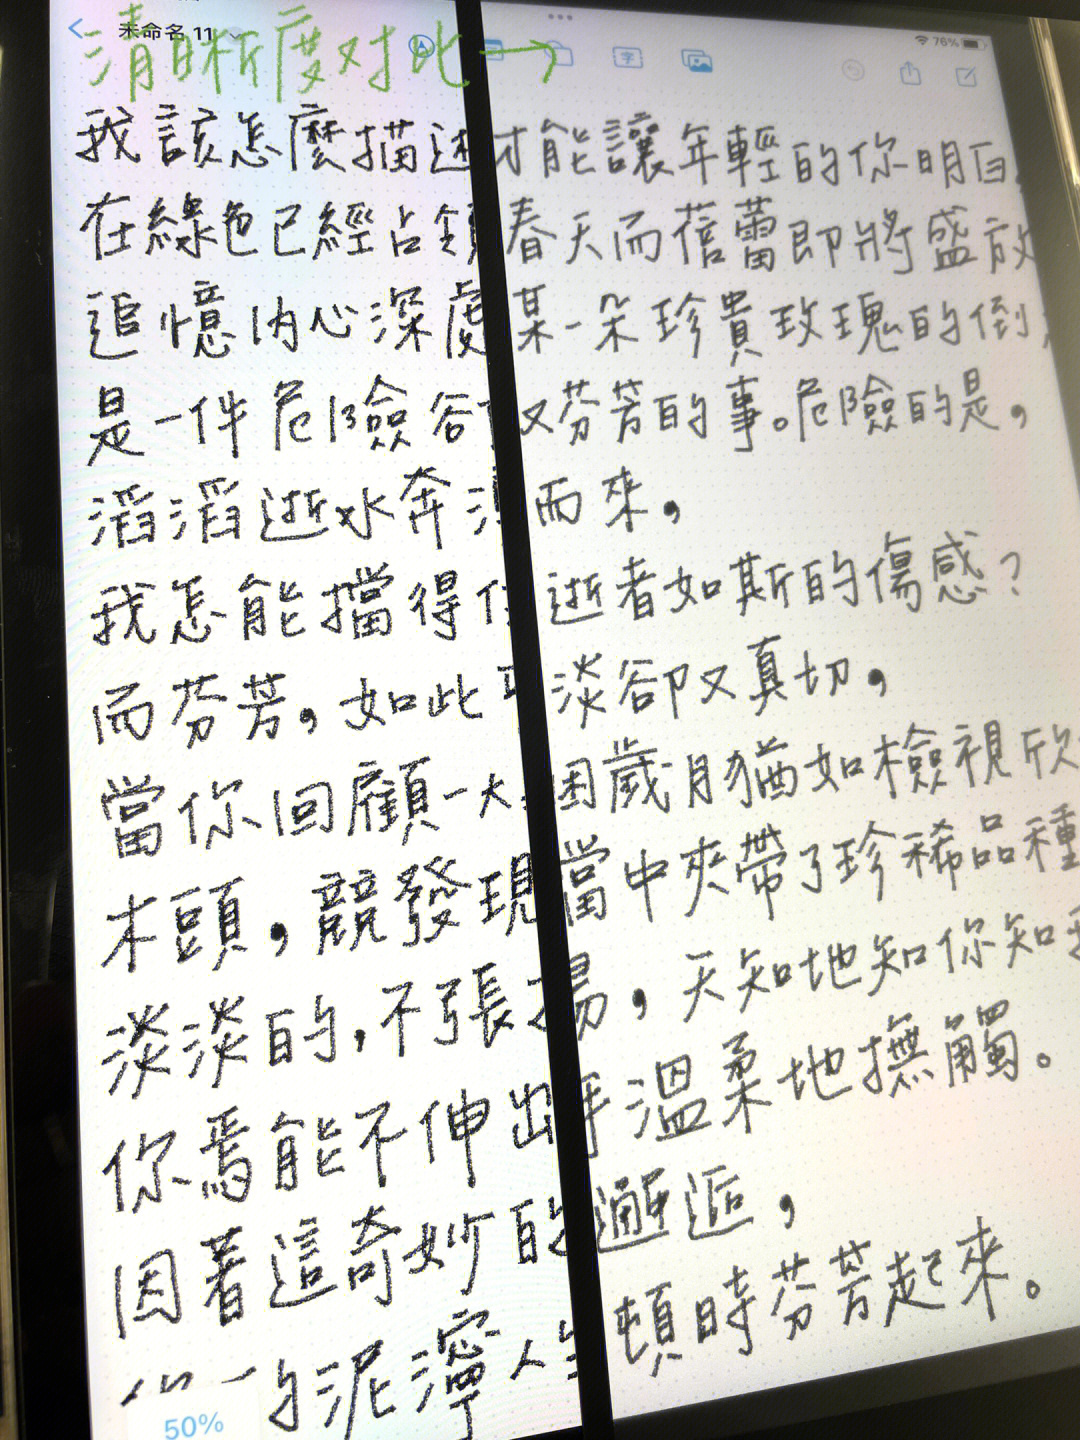 未命名 11
76%
清晰度对比
我該怎麼描述才能讓年輕的你明白
在綠色已經占領春天而蓓蕾即將盛放
追憶內心深處某一朵珍貴玫瑰的倒
是一件危險谷又芬芳的事。危險的是，
滔滔逝水奔而來，
我怎能擋得住逝者如斯的傷感？
而芬芳，如此平淡卻又真切，
當你回顧一大困歲月猶如檢視欣
木頭，競發現當中夾帶了珍稀品種
淡淡的，不張揚，天知地知你知
你焉能不伸出手溫柔地撫觸。
因著這奇妙的邂逅，
的泥濘人生頓時芬芳起來。
50%